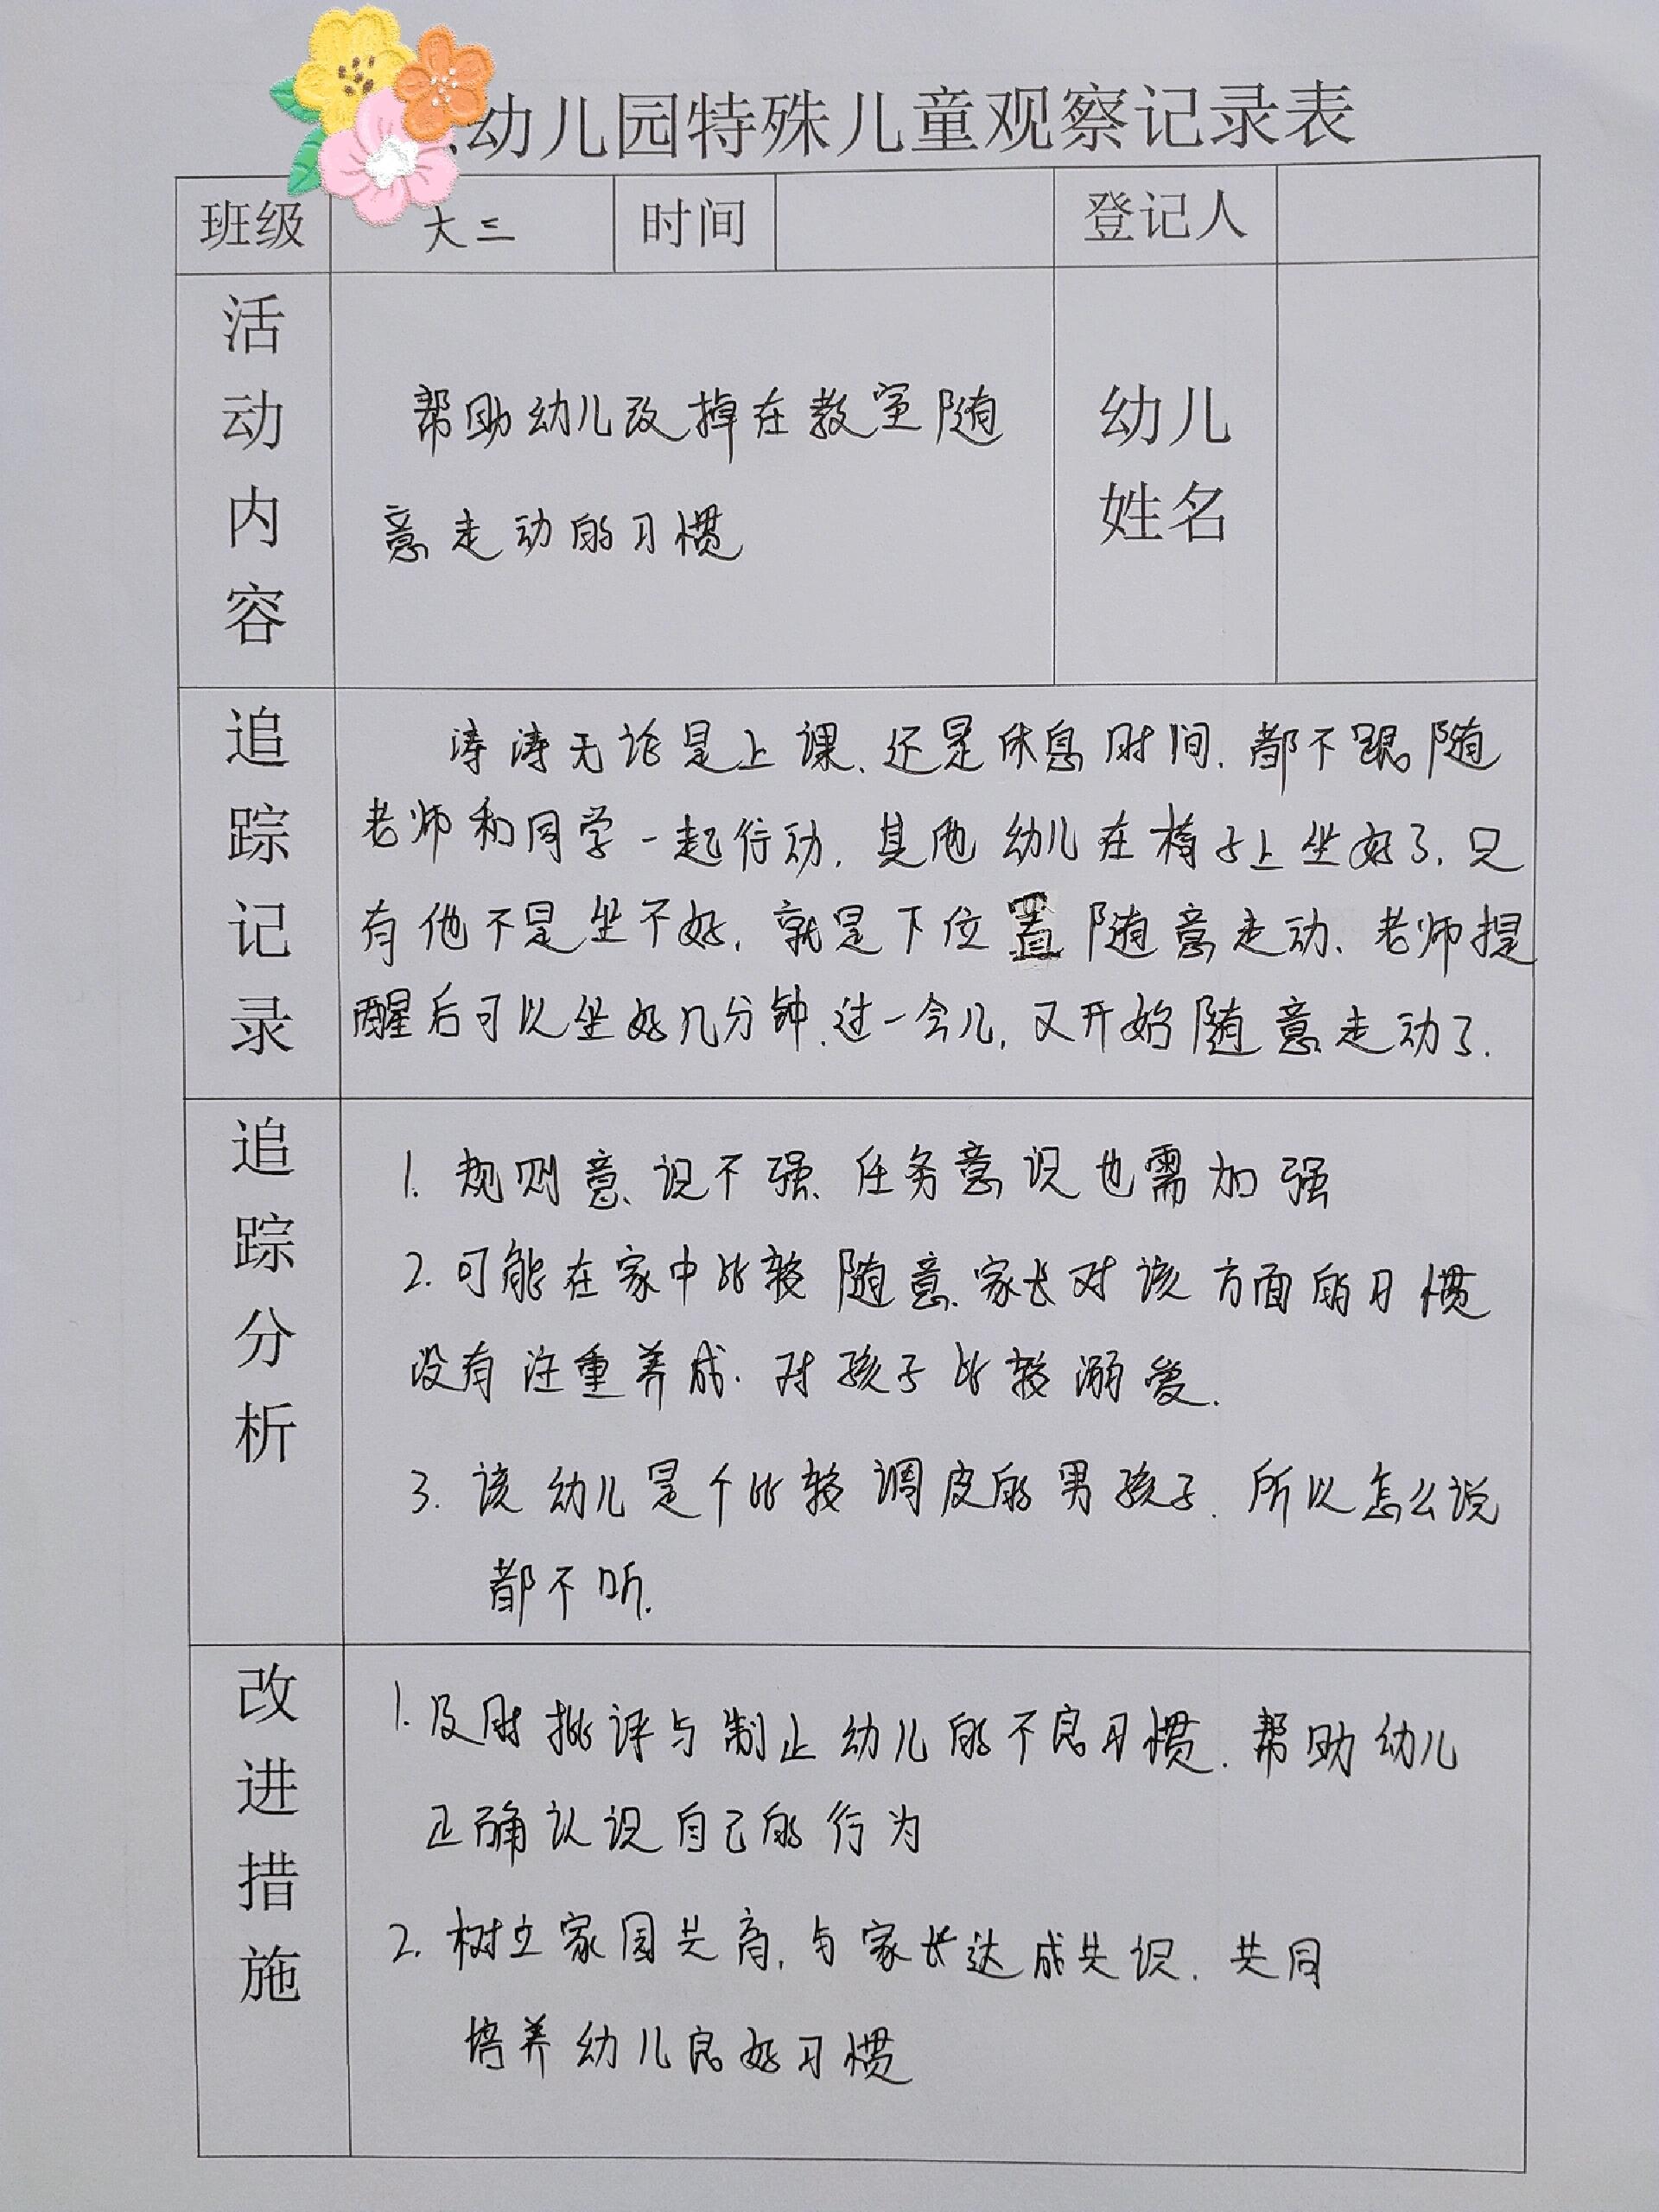 幼儿园特殊儿童观察记录表
班级 大三 时间 登记人
活动内容
帮助幼儿改掉在教室随
意走动的习惯
幼儿
姓名
追踪记录
涛涛无论是上课、还是休息时间、都不跟随
老师和同学一起行动，其他幼儿在椅子上坐好了，只
有他不是坐不好，就是下位置随意走动、老师提
醒后可以坐好几分钟、过一会儿，又开始随意走动了．
追踪分析
1. 规则意识不强、任务意识也需加强
2. 可能在家中比较随意、家长对该方面的习惯
没有注重养成．对孩子比较溺爱．
3. 该幼儿是个比较调皮的男孩子．所以怎么说
都不听．
改进措施
1. 及时批评与制止幼儿的不良习惯．帮助幼儿
正确认识自己的行为
2. 树立家园共育，与家长达成共识．共同
培养幼儿良好习惯